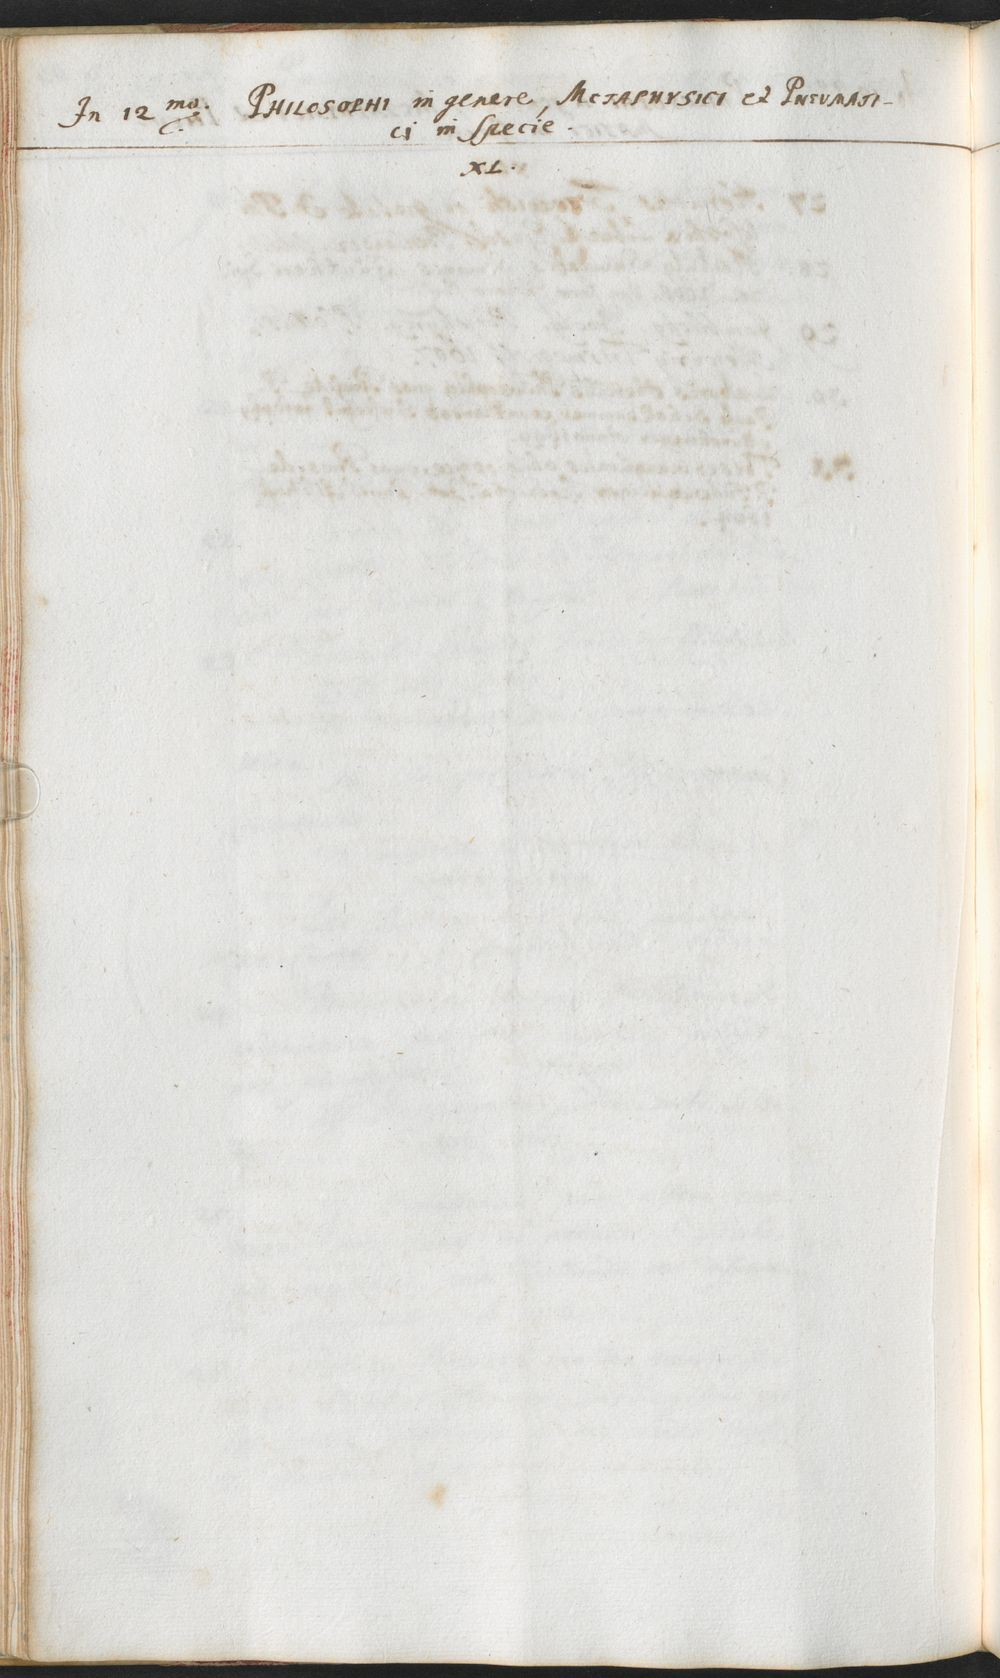 In 12 mo. PHILOSOPHI in genere, METAPHYSICI et PNEUMATI-
ci in Specie.
XL.